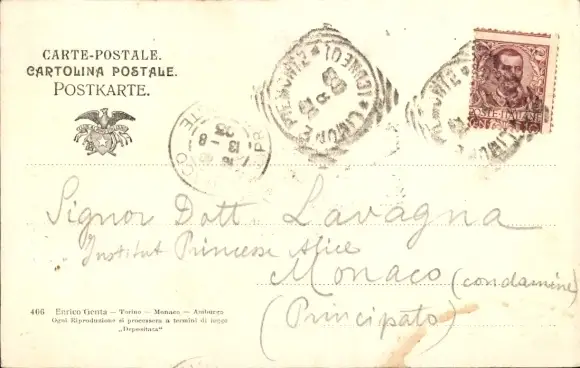 CARTE-POSTALE.
CARTOLINA POSTALE.
POSTKARTE.
LIMONE PIEMONTE
(CUNEO)
13 8 03
LIMONE PIEMONTE
POSTE ITALIANE
MONACO
13 - 8
03
Signor Dott. Lavagna
" Institut Princesse Alice
Monaco (condamine)
(Principato)
466 Enrico Genta - Torino - Monaco - Amburgo
Ogni Riproduzione si processera a termini di legge
„Depositata"